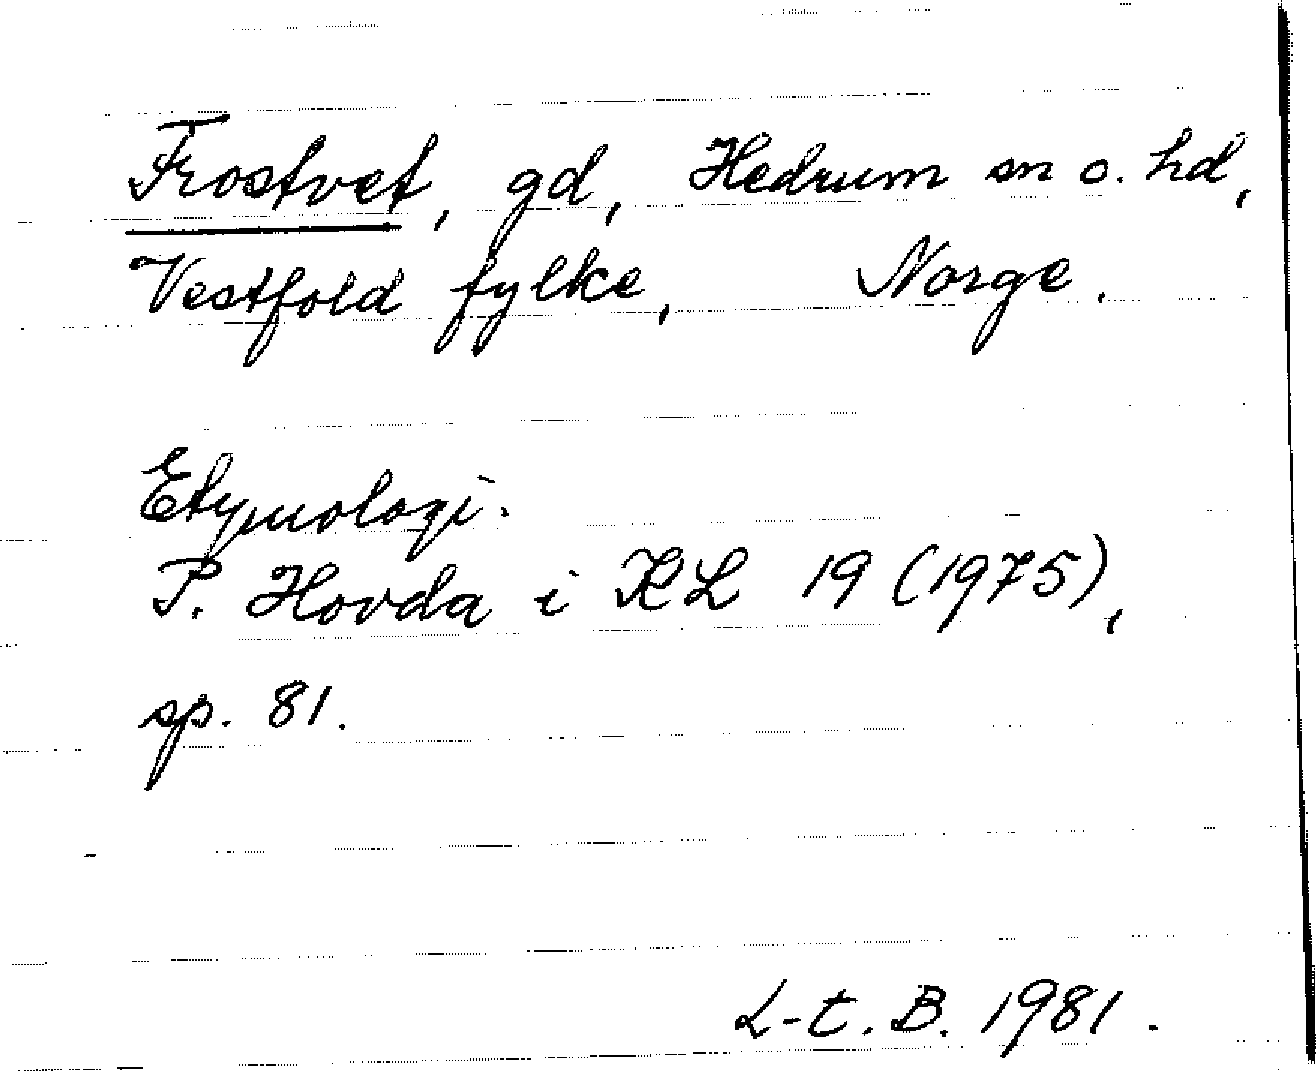 Frostvet, gd, Hedrum sn o. hd,
Vestfold fylke, Norge.
Etymologi.
P. Hovda i KL 19 (1975),
sp. 81.
L-t. B. 1981.